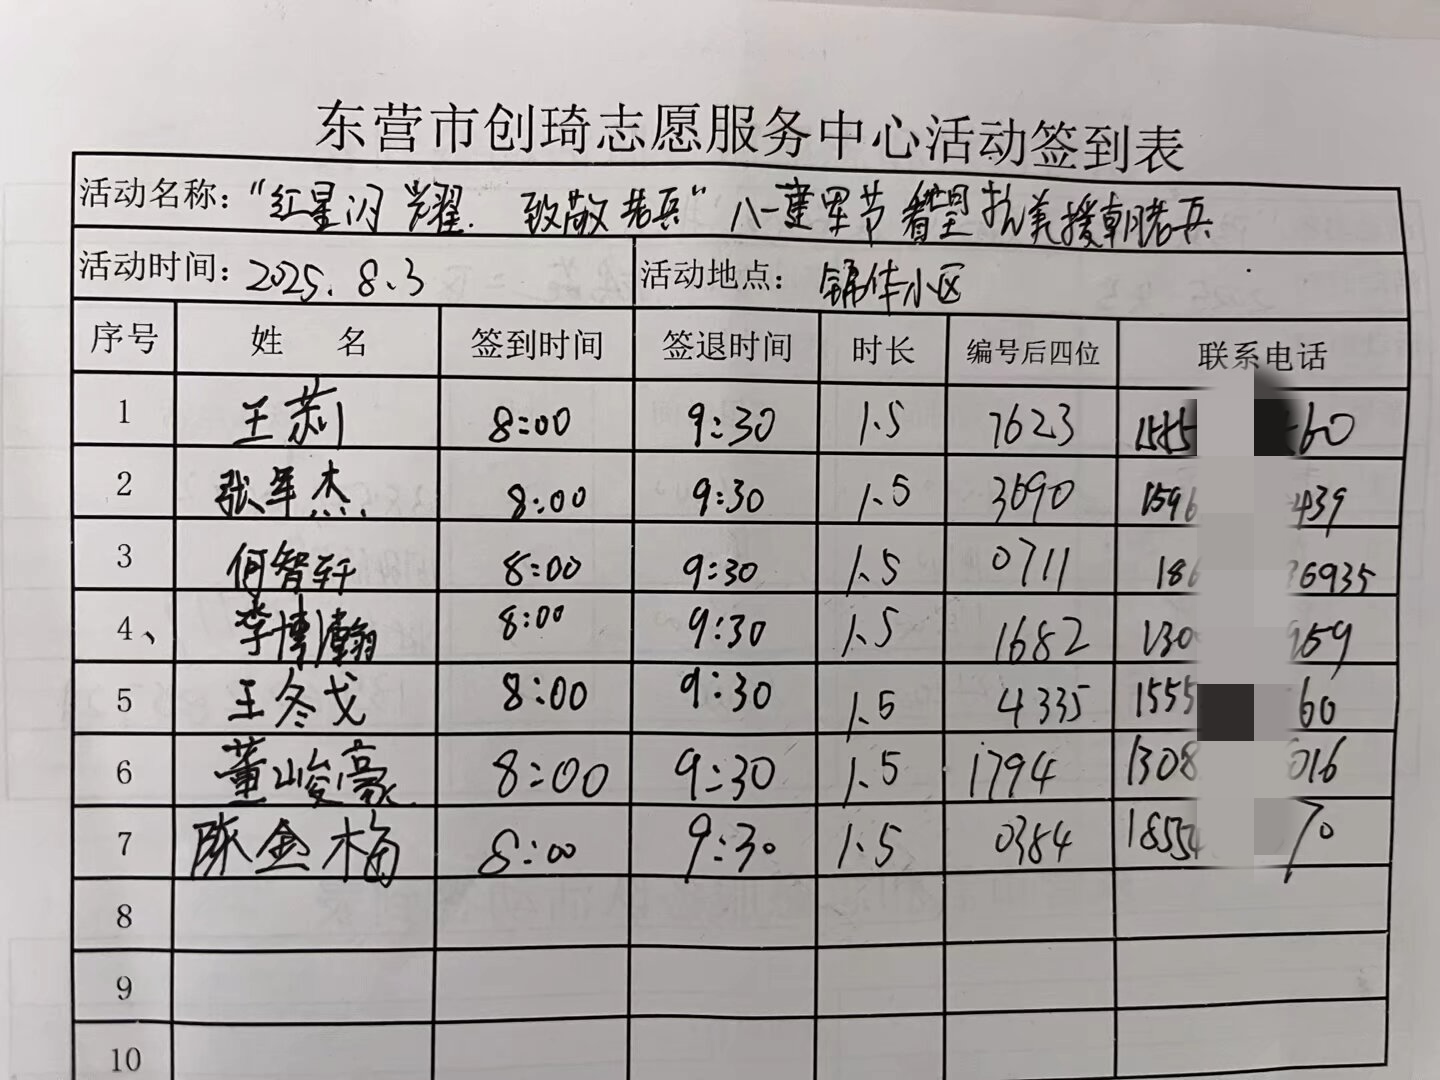 东营市创琦志愿服务中心活动签到表
活动名称：“红星闪耀．致敬老兵”八一建军节看望抗美援朝老兵
活动时间：2025.8.3 活动地点：锦华小区
序号 姓 名 签到时间 签退时间 时长 编号后四位 联系电话
1 王莉 8:00 9:30 1.5 7623 60
2 张军杰 8:00 9:30 1.5 3690 1596 439
3 何智轩 8:00 9:30 1.5 0711 18 6935
4、 李博瀚 8:00 9:30 1.5 1682 130 959
5 王冬戈 8:00 9:30 1.5 4335 1555 60
6 董峻豪 8:00 9:30 1.5 1794 1308 016
7 陈金梅 8:00 9:30 1.5 0384 18554 70
8
9
10